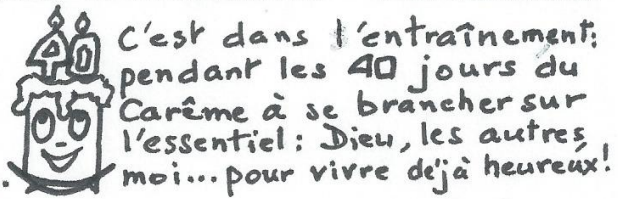 40
C'est dans l'entraînement:
pendant les 40 jours du
Carême à se brancher sur
l'essentiel: Dieu, les autres
moi... pour vivre déjà heureux!